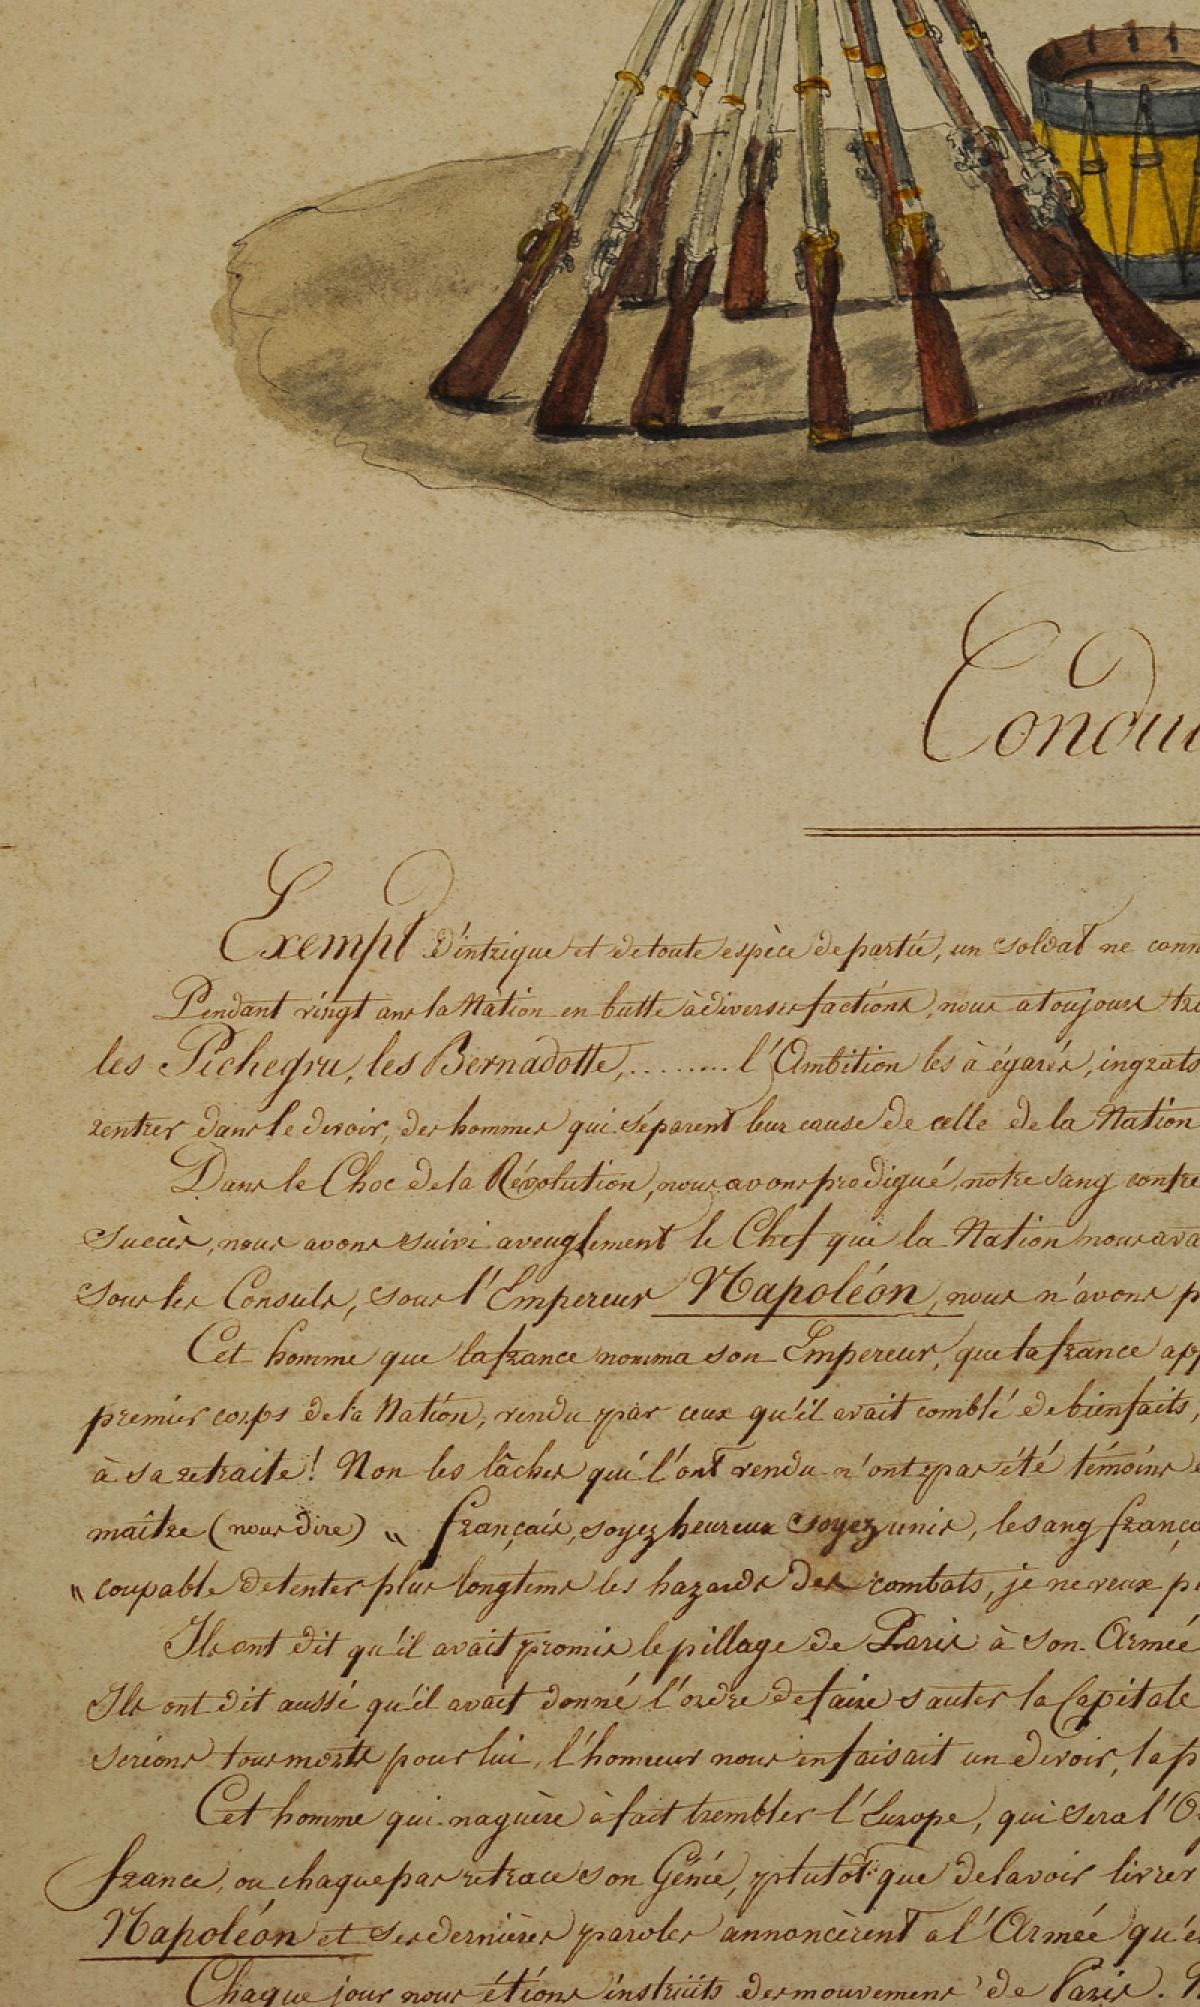 Condui
Exempt d'intrigue et de toute espèce de partie, un soldat ne conn
Pendant vingt ans la Nation en butte à diverses factions, nous a toujours tro
les Pichegru, les Bernadotte,........ l'Ambition les à égarés, ingrats
rentrer dans le devoir, des hommes qui séparent leur cause de celle de la Nation
Dans le Choc de la Révolution, nous avons prodigué notre sang contre
succès, nous avons suivi aveuglement le Chef que la Nation nous ava
sous les Consuls, sous l'Empereur Napoléon, nous n'avons p
Cet homme que la france nomma son Empereur, que la france app
premier corps de la Nation, rendu par ceux qu'il avait comblé de bienfaits,
à sa retraite! Non les lâches qui l'ont rendu n'ont pas été témoins
maître (nous dire) „ français, soyez heureux soyez unis, le sang franço
" coupable de tenter plus longtems les hazards des combats, je ne veux pl
Ils ont dit qu'il avait promis le pillage de Paris à son Armée
Ils ont dit aussi qu'il avait donné l'ordre de faire sauter la Capitale
serions tous morts pour lui, l'honneur nous en faisait un devoir, la p
Cet homme qui naguère à fait trembler l'Europe, qui sera l'O
france, ou chaque pas retrace son Génie, plutôt que de lavoir livrer
Napoléon et ses dernières paroles annoncèrent a l'Armée qu'e
Chaque jour nous étions instruits des mouvemens de Paris.